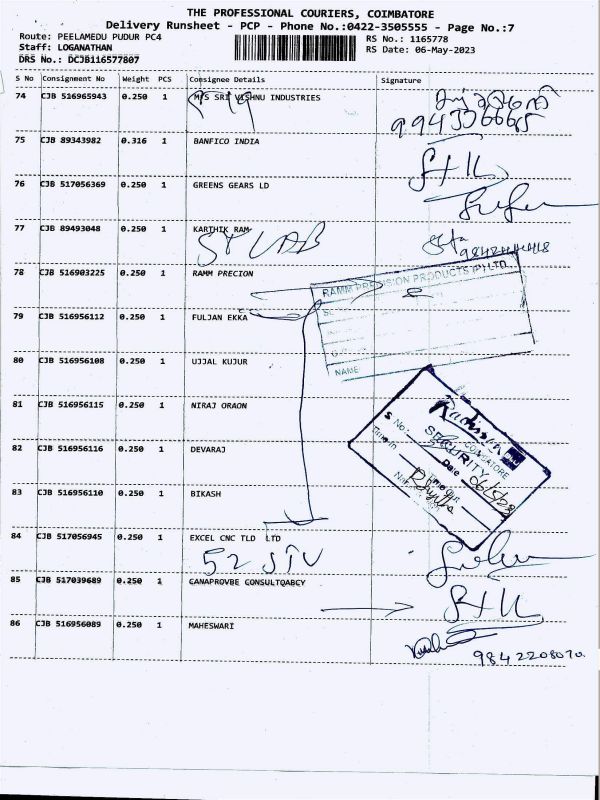 THE PROFESSIONAL COURIERS, COIMBATORE
Delivery Runsheet - PCP - Phone No.:0422-3505555 - Page No.:7
Route: PEELAMEDU PUDUR PC4
RS No.: 1165778
Staff: LOGANATHAN
RS Date: 06-May-2023
DRS No.: DCJB116577807
S No Consignment No Weight PCS Consignee Details Signature
74 CJB 516965943 0.250 1 M/S SRI VISHNU INDUSTRIES
75 CJB 89343982 0.316 1 BANFICO INDIA
76 CJB 517056369 0.250 1 GREENS GEARS LD
77 CJB 89493048 0.250 1 KARTHIK RAM
78 CJB 516903225 0.250 1 RAMM PRECION
RAMM PRECISION PRODUCTS (P) LTD.
79 CJB 516956112 0.250 1 FULJAN EKKA
NAME
80 CJB 516956108 0.250 1 UJJAL KUJUR
81 CJB 516956115 0.250 1 NIRAJ ORAON
COIMBATORE
SECURITY
S No:
Date
Time in
Time Out
82 CJB 516956116 0.250 1 DEVARAJ
83 CJB 516956110 0.250 1 BIKASH
84 CJB 517056945 0.250 1 EXCEL CNC TLD LTD
85 CJB 517039689 0.250 1 CANAPROVBE CONSULTQABCY
86 CJB 516956089 0.250 1 MAHESWARI
9842208070